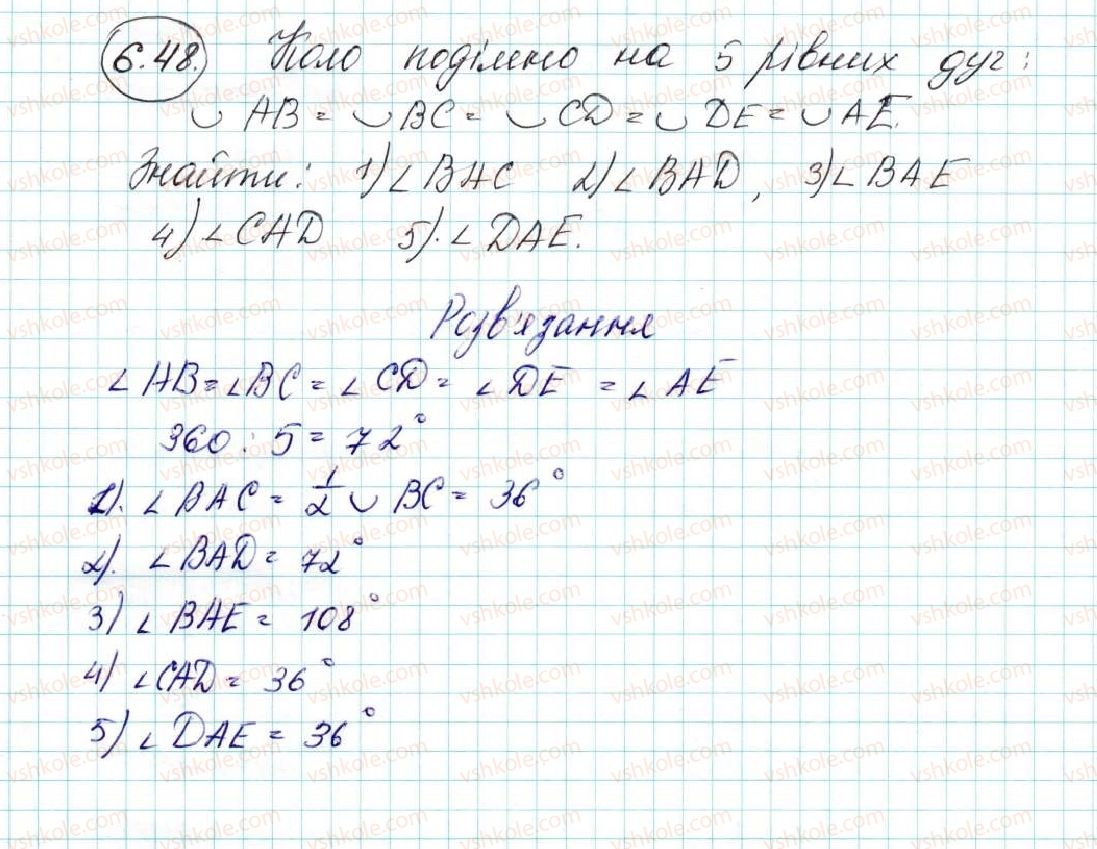 6.48. Коло поділено на 5 рівних дуг:
◡ AB = ◡ BC = ◡ CD = ◡ DE = ◡ AE.
Знайти: 1) ∠ BAC 2) ∠ BAD, 3) ∠ BAE
4) ∠ CAD 5). ∠ DAE.
Розв'язання
∠ AB = ∠ BC = ∠ CD = ∠ DE = ∠ AE
360 : 5 = 72°
1). ∠ BAC = 1/2 ◡ BC = 36°
2). ∠ BAD = 72°
3) ∠ BAE = 108°
4) ∠ CAD = 36°
5) ∠ DAE = 36°
vshkole.com